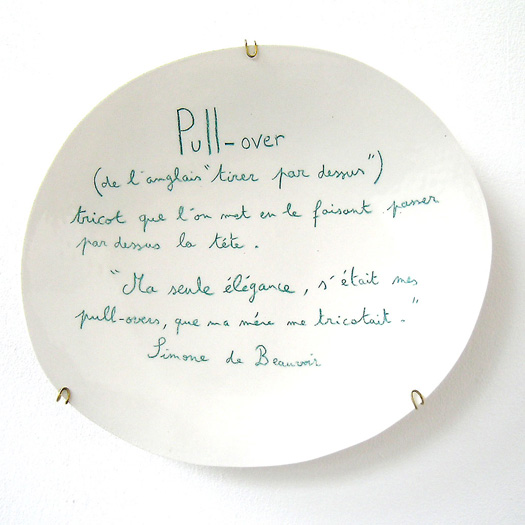 Pull-over
(de l'anglais "tirer par dessus")
tricot que l'on met en le faisant passer
par dessus la tête.
"Ma seule élégance, s'était mes
pull-overs, que ma mère me tricotait."
Simone de Beauvoir